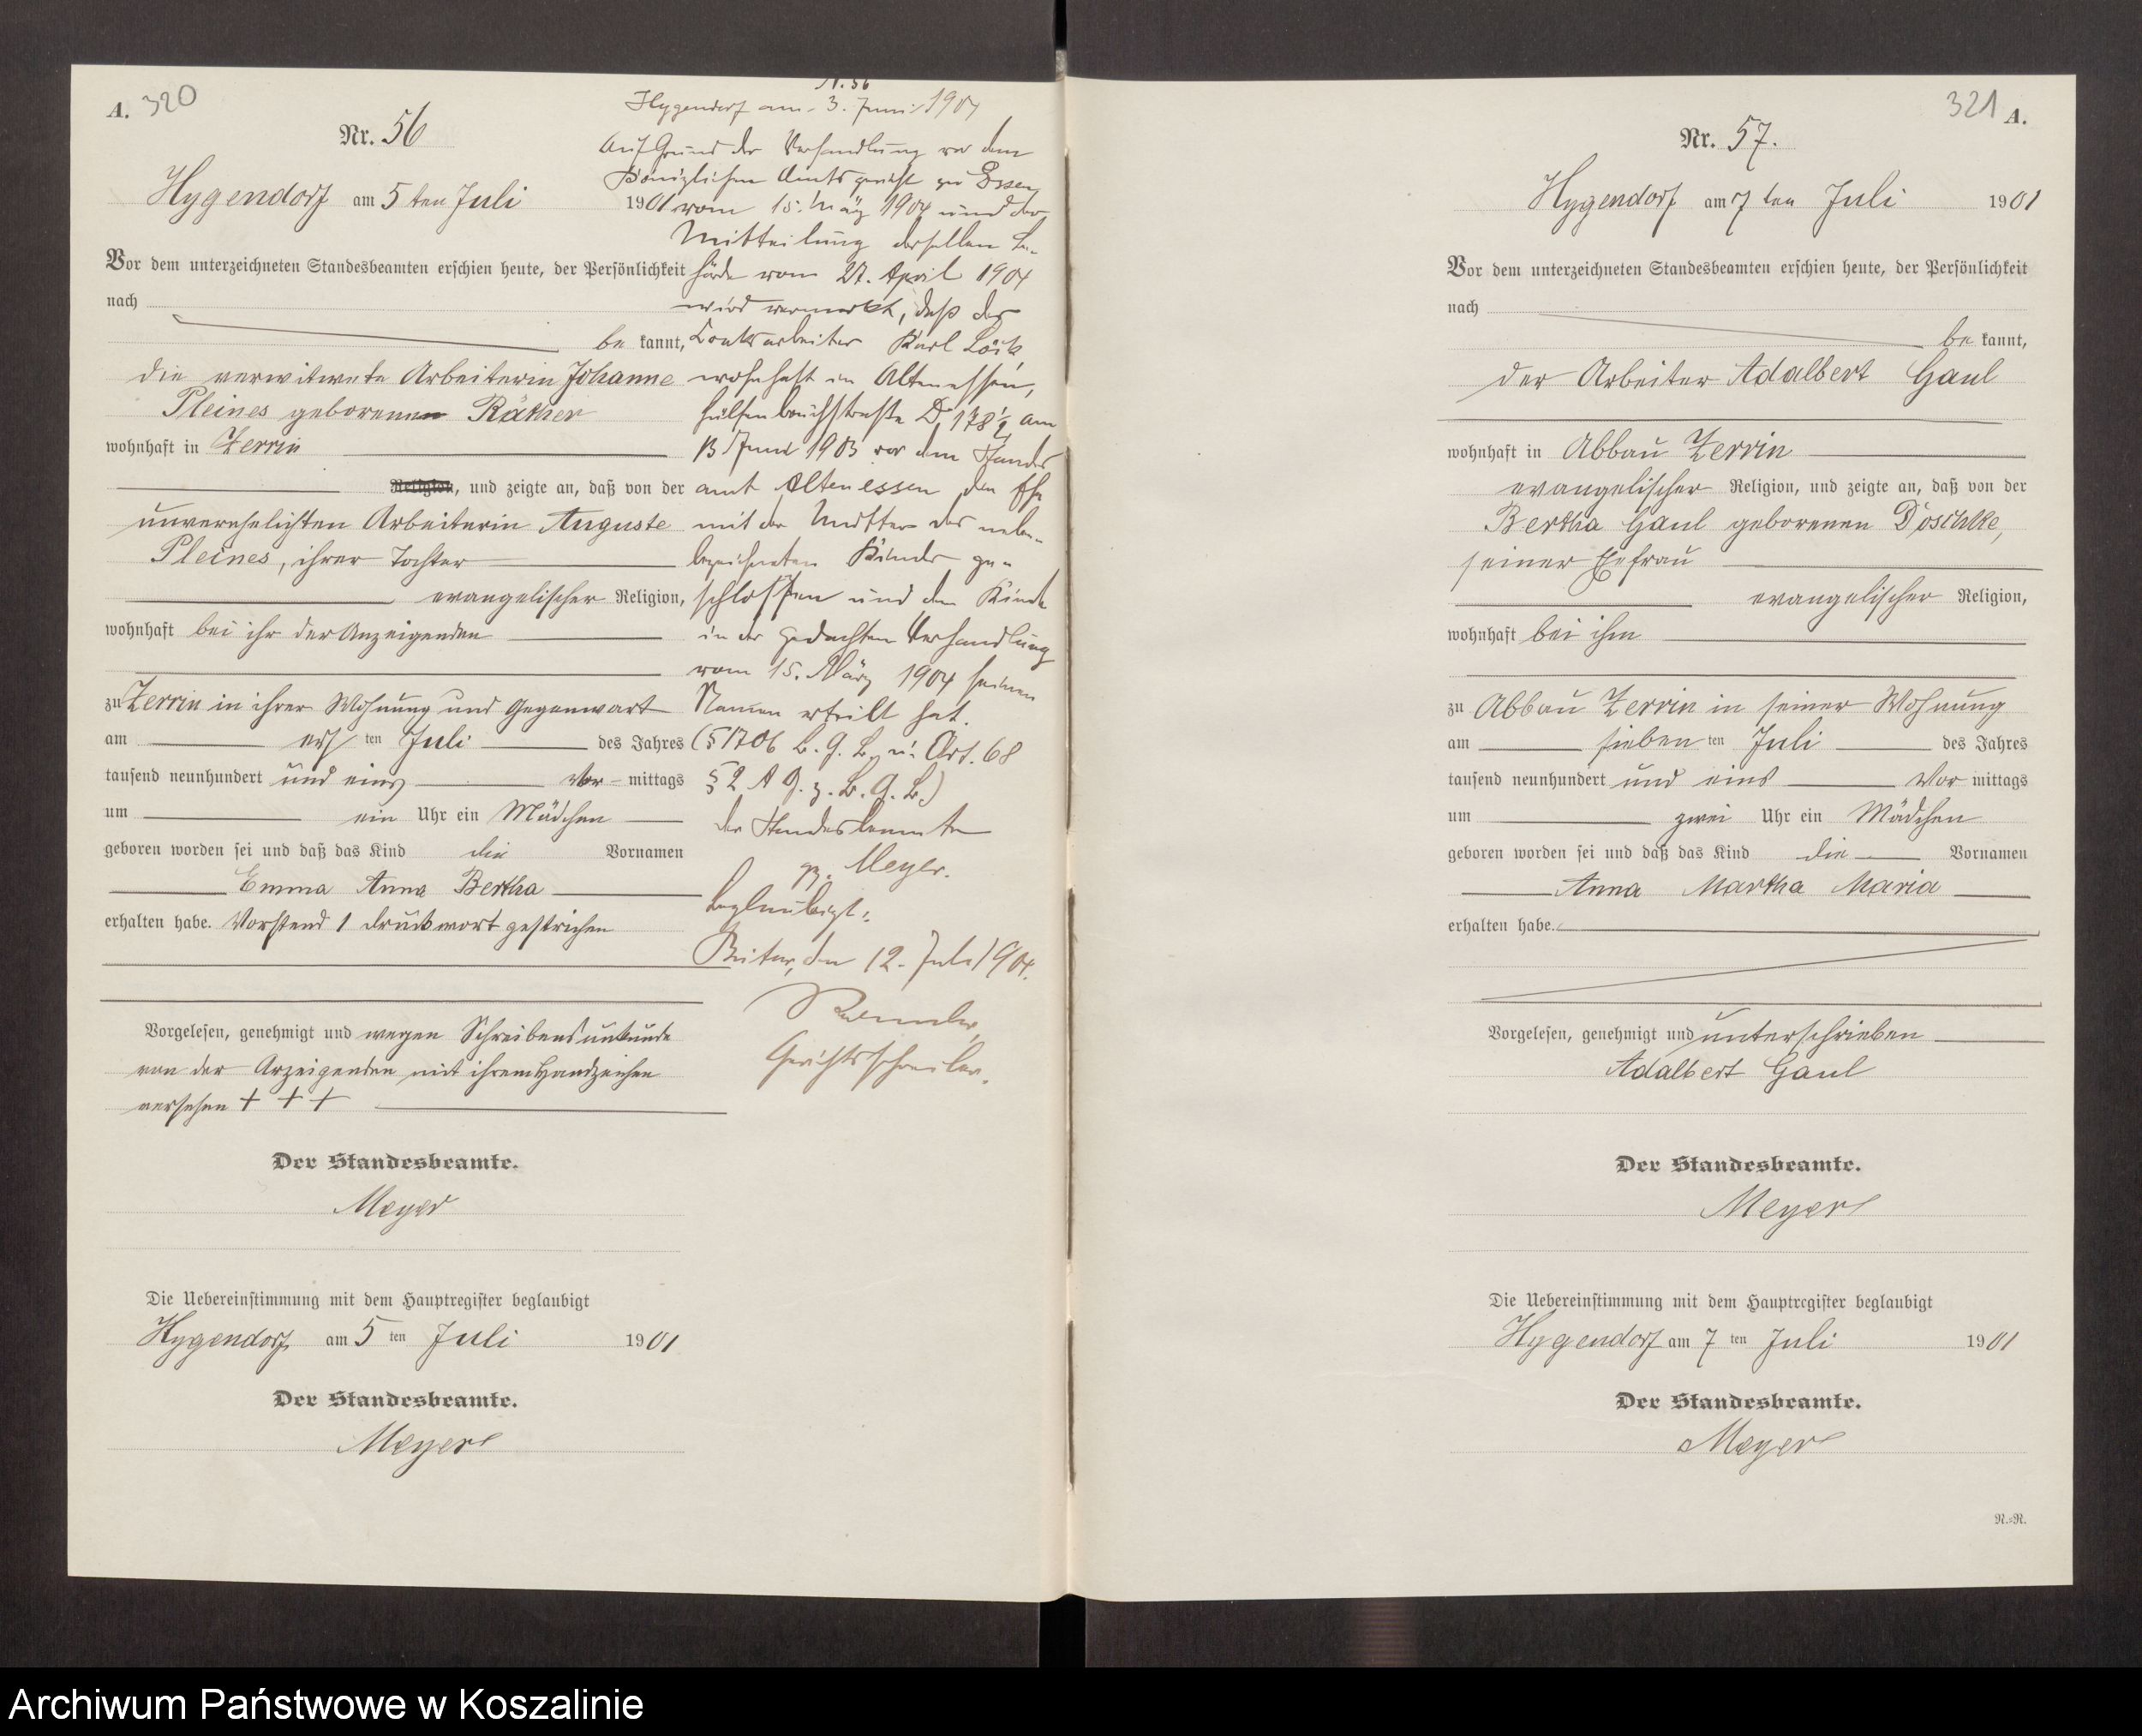 A. 320
Nr. 56
Hygendorf am 5 ten Juli 1901
Vor dem unterzeichneten Standesbeamten erschien heute, der Persönlichkeit
nach
be kannt,
die verwitwete Arbeiterin Johanne
Pleines geborenen Räther
wohnhaft in Zerrin
Religion, und zeigte an, daß von der
unverehelichten Arbeiterin Auguste
Pleines, ihrer Tochter
evangelischer Religion,
wohnhaft bei ihr der Anzeigenden
zu Zerrin in ihrer Wohnung und Gegenwart
am ersten Juli des Jahres
tausend neunhundert und eins Vor-mittags
um ein Uhr ein Mädchen
geboren worden sei und daß das Kind die Vornamen
Emma Anna Bertha
erhalten habe. Vorstehend 1 Druckwort gestrichen
Vorgelesen, genehmigt und wegen Schreibensunkunde
von der Anzeigenden mit ihrem Handzeichen
versehen + + +
Der Standesbeamte.
Meyer
Die Uebereinstimmung mit dem Hauptregister beglaubigt
Hygendorf am 5 ten Juli 1901
Der Standesbeamte.
Meyer
N. 56
Hygendorf am 3. Juni 1904
Auf Grund der Verhandlung vor dem
Königlichen Amtsgericht zu Essen
vom 15. März 1904 und der
Mitteilung derselben Be-
hörde vom 27. April 1904
wird vermerkt, daß der
Koaksarbeiter Karl Löck
wohnhaft in Altenessen,
Hülsenbruchstraße D 178 1/2 am
13 Juni 1903 vor dem Standes
amt Altenessen die Ehe
mit der Mutter des neben-
bezeichneten Kindes ge-
schlossen und dem Kinde
in der gedachten Verhandlung
vom 15. März 1904 seinen
Namen erteilt hat.
(§ 1706 B. G. B. u. Art. 68
§ 2 A G. z. B. G. B.)
der Standesbeamte
gz. Meyer.
Beglaubigt:
Bütow, den 12. Juli 1904.
Gerichtsschreiber.
321 A.
Nr. 57.
Hygendorf am 7 ten Juli 1901
Vor dem unterzeichneten Standesbeamten erschien heute, der Persönlichkeit
nach
be kannt,
der Arbeiter Adalbert Gaul
wohnhaft in Abbau Zerrin
evangelischer Religion, und zeigte an, daß von der
Bertha Gaul geborenen Doschke,
seiner Ehefrau
evangelischer Religion,
wohnhaft bei ihm
zu Abbau Zerrin in seiner Wohnung
am sieben ten Juli des Jahres
tausend neunhundert und eins Vor mittags
um zwei Uhr ein Mädchen
geboren worden sei und daß das Kind die Vornamen
Anna Martha Maria
erhalten habe.
Vorgelesen, genehmigt und unterschrieben
Adalbert Gaul
Der Standesbeamte.
Meyer
Die Uebereinstimmung mit dem Hauptregister beglaubigt
Hygendorf am 7 ten Juli 1901
Der Standesbeamte.
Meyer
N.=N.
Archiwum Państwowe w Koszalinie